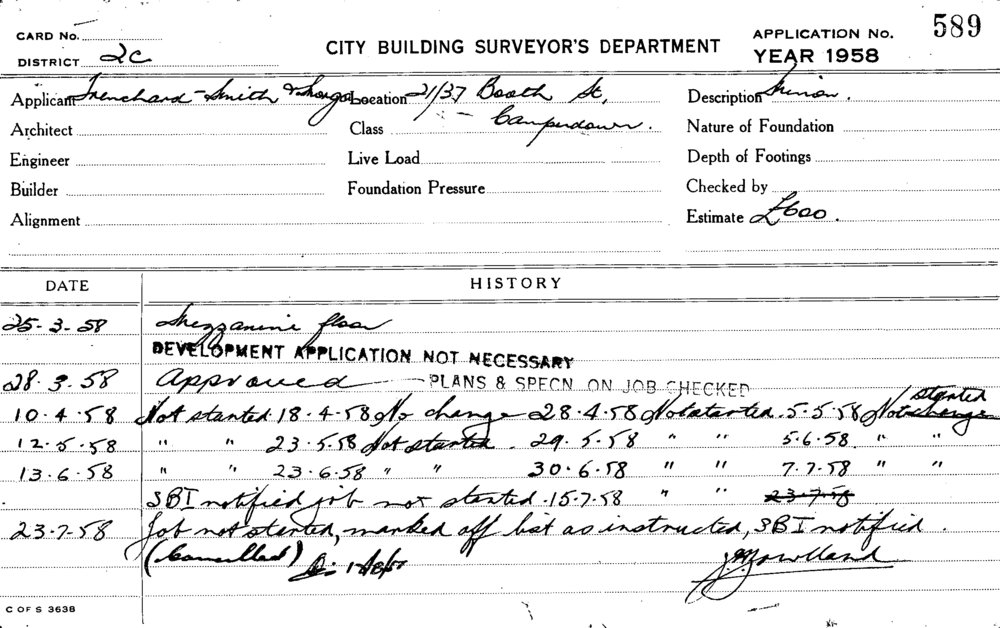 CARD No. CITY BUILDING SURVEYOR'S DEPARTMENT APPLICATION No. 589
DISTRICT 2C YEAR 1958
Applicant Trenchard-Smith & Location 21/37 Booth St, Description Minor.
Architect Class Camperdown. Nature of Foundation
Engineer Live Load Depth of Footings
Builder Foundation Pressure Checked by
Alignment Estimate £600.
DATE HISTORY
25-3-58 Mezzanine floor
DEVELOPMENT APPLICATION NOT NECESSARY
28.3.58 Approved PLANS & SPECN ON JOB CHECKED
started
10.4.58 Not started 18.4.58 No change 28.4.58 Not started. 5.5.58 Not change
12.5.58 " " 23.5.58 Not started. 29.5.58 " " 5.6.58. " "
13.6.58 " " 23.6.58 " " 30.6.58 " " 7.7.58 " "
SBI notified job not started. 15.7.58 " " 23.7.58
23.7.58 Job not started, marked off list as instructed, SBI notified.
(Cancelled)
C OF S 3638